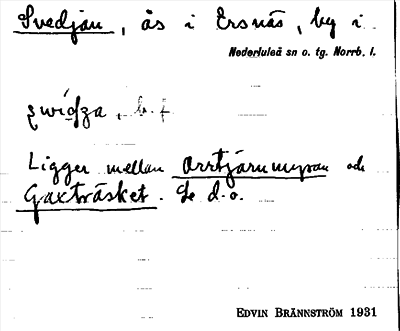 Svedjan, ås i Ersnäs, by i
Nederluleå sn o. tg. Norrb. l.
b. f.
Ligger mellan Orrtjärnmyran och
Gaxträsket. Se d.o.
EDVIN BRÄNNSTRÖM 1931